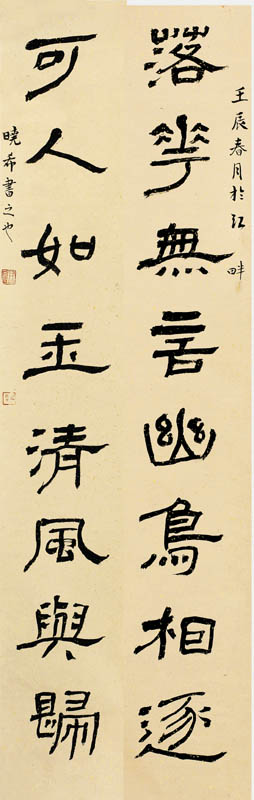 壬辰春月於江畔
落花無言幽鳥相逐
可人如玉清風與歸
曉希書之也